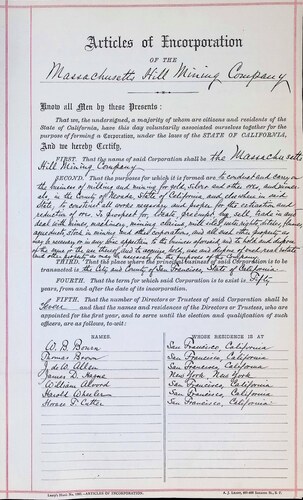 Articles of Incorporation
OF THE
Massachusetts Hill Mining Company
Know all Men by these Presents:
That we, the undersigned, a majority of whom are citizens and residents of the
State of California, have this day voluntarily associated ourselves together for the
purpose of forming a Corporation, under the laws of the STATE OF CALIFORNIA.
And we hereby Certify,
FIRST. That the name of said Corporation shall be the Massachusetts
Hill Mining Company.
SECOND. That the purposes for which it is formed are to conduct and carry on
the business of milling and mining for gold, silver and other ores, and minerals,
in the County of Nevada, State of California, and elsewhere in said
State, to construct all works necessary and proper for the extraction and
reduction of ores. To prospect for, locate, preempt, buy, sell, trade in any
deal with mines, machinery, mining claims, mill sites, water rights, ditches, flumes,
aqueducts, stock in mining and other corporations, and all and other property as
may be necessary or in any wise appertain to the business aforesaid and to hold and dispose
of the same
THIRD. That the place where the principal business of said Corporation is to be
transacted is the City and County of San Francisco, State of California.
FOURTH. That the term for which said Corporation is to exist is Fifty
years, from and after the date of its incorporation.
FIFTH. That the number of Directors or Trustees of said Corporation shall be
Seven and that the names and residences of the Directors or Trustees, who are
appointed for the first year, and to serve until the election and qualification of such
officers, are as follows, to-wit:
NAMES. WHOSE RESIDENCE IS AT
W. B. Bourn San Francisco, California
Thomas Brown San Francisco, California
San Francisco, California
James D. Hague New York, New York
William Alvord San Francisco, California
Harold Wheeler San Francisco, California
Horace F. Cutter San Francisco, California
ARTICLES OF INCORPORATION